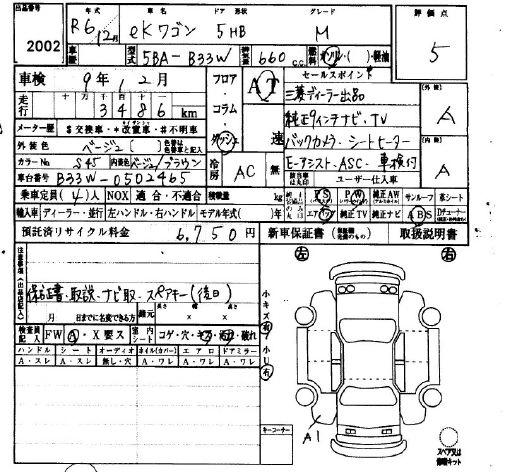 出品番号 年式 車名 ドア 形状 グレード 評価点
2002 R6/12月 eKワゴン 5HB M 5
車歴 型式 5BA-B33W 排気量 660 c.c. 燃料 ガソリン・( )・軽油
車検 9年12月 フロア・コラム・ダッシュ AT 速 セールスポイント
走行 十 万 千 百 十 一
3486 km
三菱ディーラー出品
純正9インチナビ、TV
バックカメラ・シートヒーター
E-アシスト・ASC・車検付
外装 A
内装 A
メーター歴 $交換車・*改ザン車・#不明車
外装色 ベージュ2 (色替車は元色車名と記入)
カラーNo S45 内装色 ベージュ/ブラウン 冷房 AC 無
車台番号 B33W-0502465 ユーザー仕入車
乗車定員 (4)人 NOX 適合・不適合 積載量 kg PS PW 純正AW サンルーフ 革シート
輸入車 ディーラー・並行 左ハンドル・右ハンドル モデル年式( )年 エアB 純正TV 純正ナビ ABS
預託済リサイクル料金 6,750円 新車保証書 取扱説明書
注意事項(出品店記入)
保証書・取説・ナビ取・スペアキー(後日)
月 日までに名変できる方 キズ有
検査員記入 FW A・X要ス 室内シート コゲ・穴・キズ・汚れ・破れ
ハンドル シート オーディオ ホイル(カバー) エアロ ドアミラー
A・スレ A・スレ 無し・穴 A・ワレ A・ワレ A・ワレ
左 右
A1
キーコーナー
スペア又は修理キット